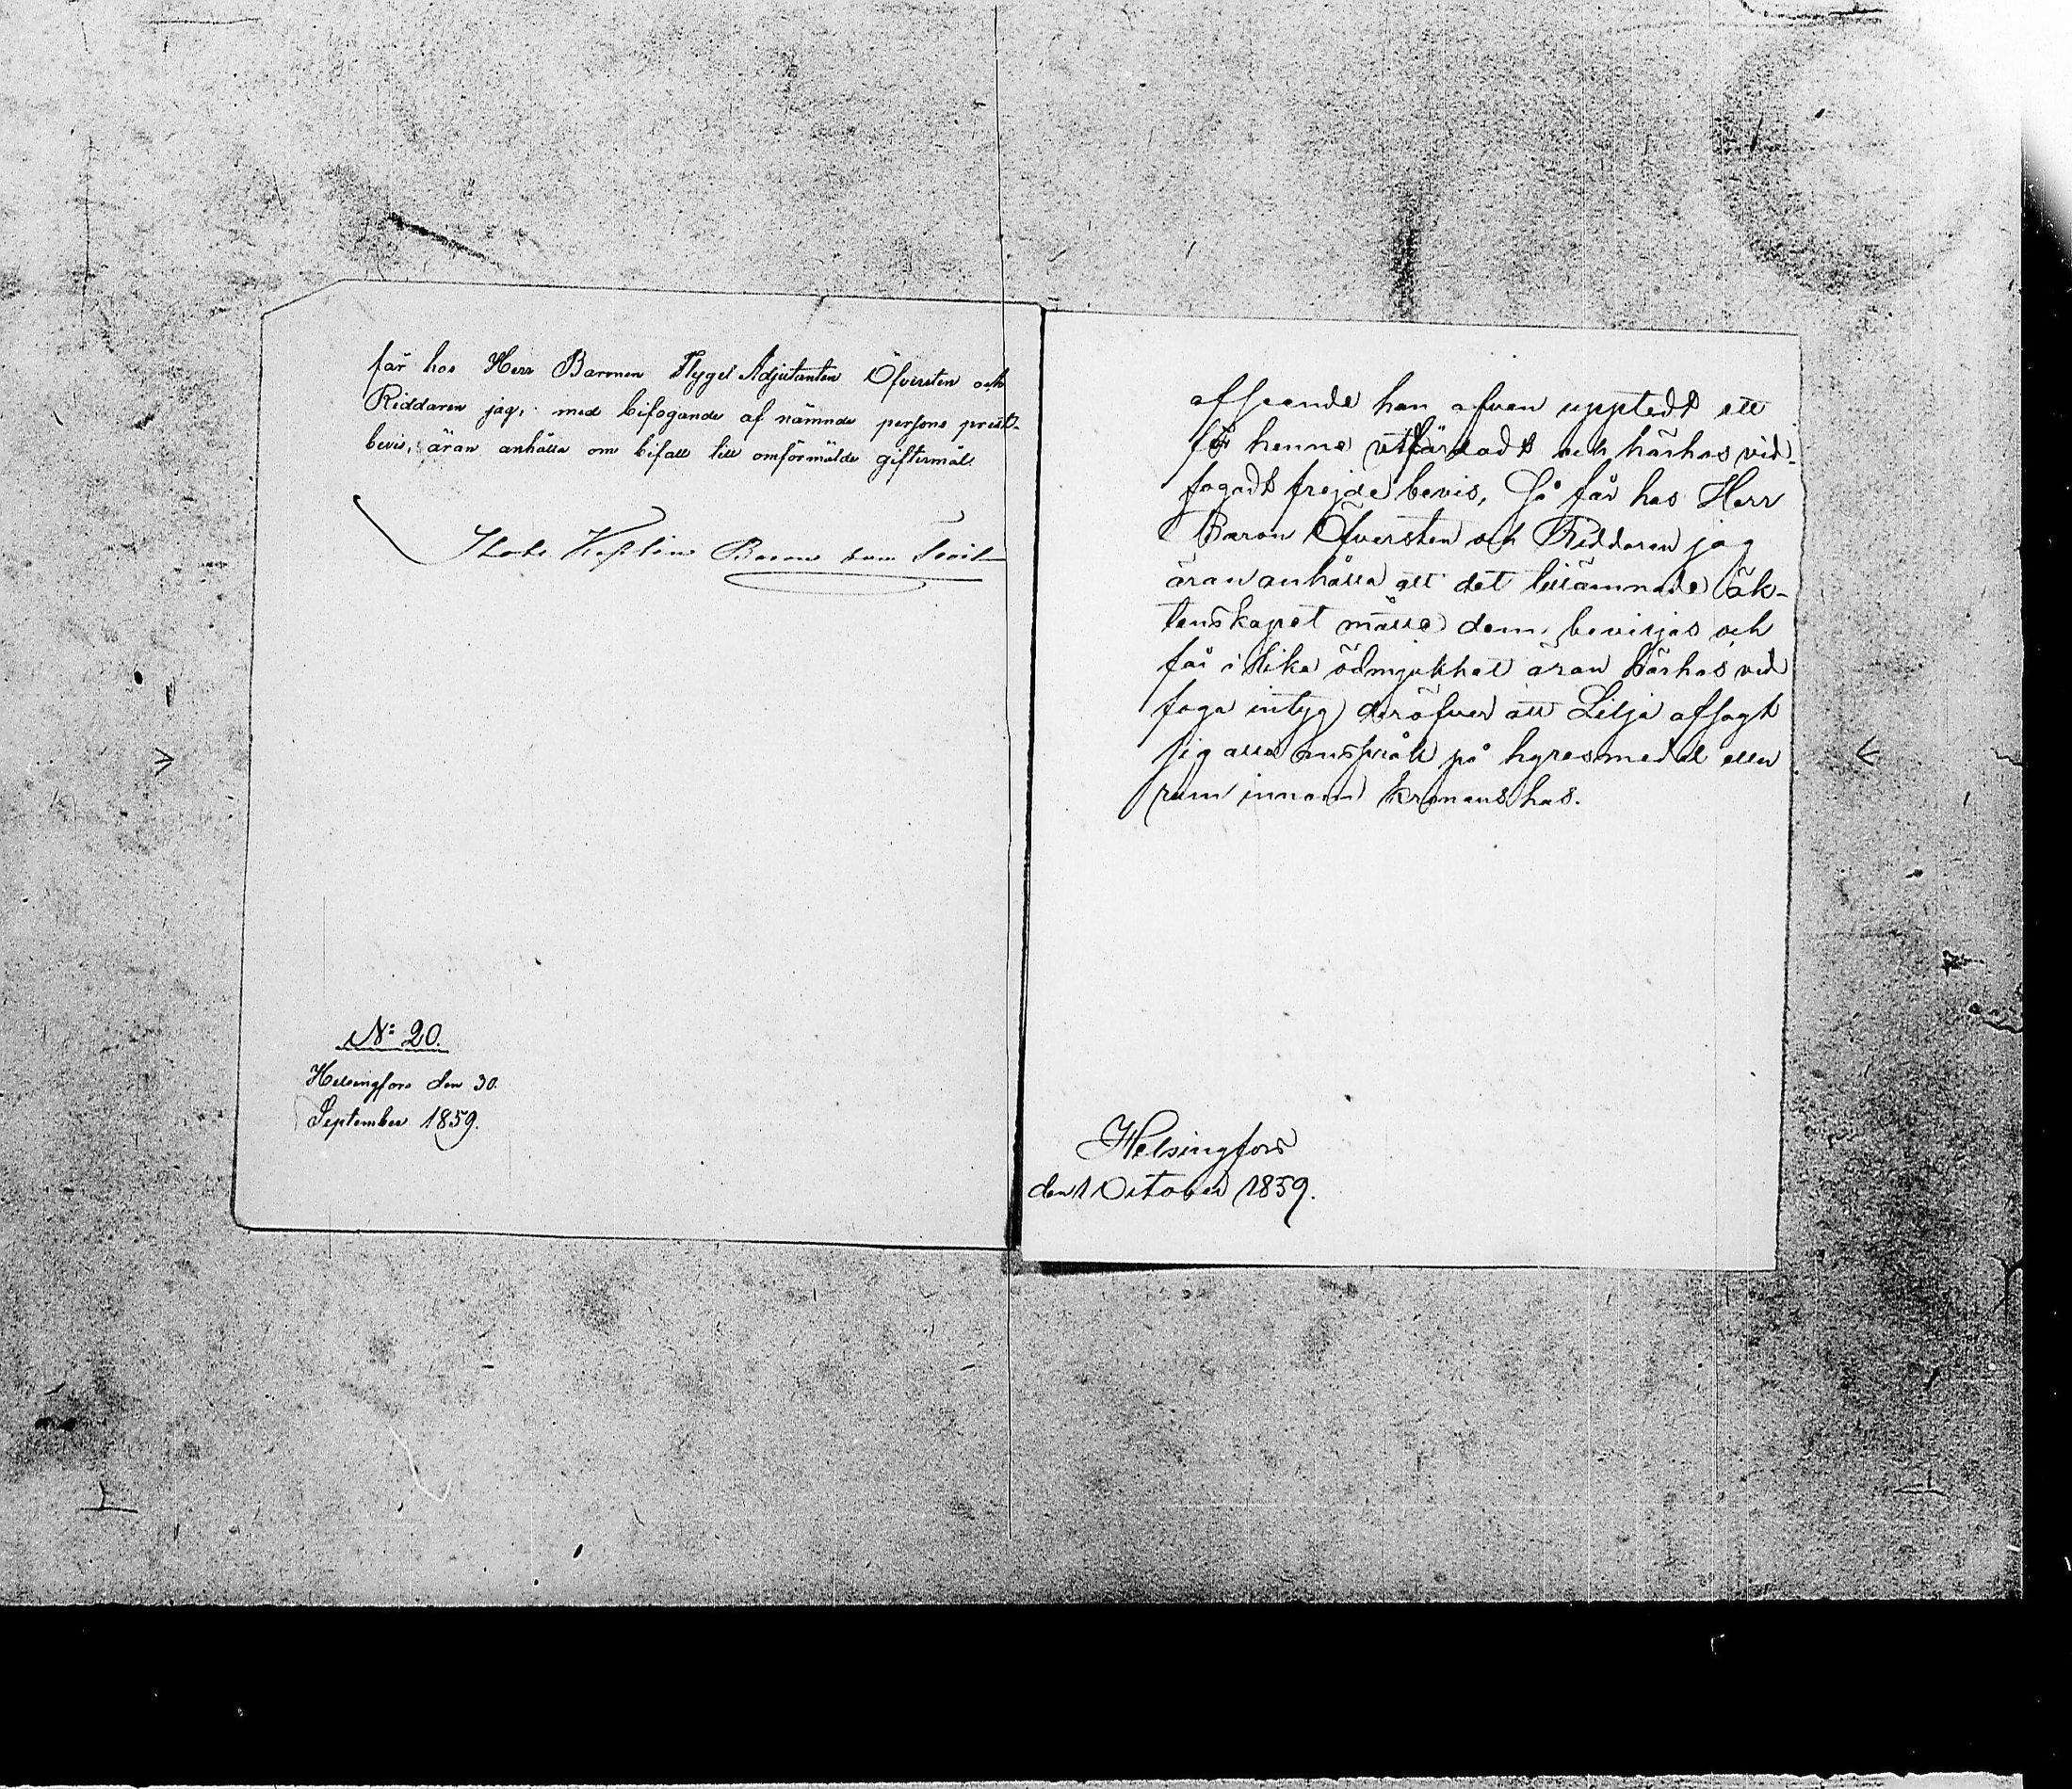 får hos Herr Baronen Flygel Adjutanten Öfversten och
Riddaren jag, med bifogande af nämnde persons prest-
bevis, äran anhålla om bifall till omförmälde giftermål.
Baron
No: 20.
Helsingfors den 30.
September 1859.
afseende han äfven upptedt ett
för henne utfärdadt och härhos vid-
fogadt frejdebevis, Så får hos Herr
Baron Öfversten och Riddaren jag
äran anhålla att det tillämnade äk-
tenskapet måtte dem beviljas och
får i lika ödmjukhet äran härhos vid
foga intyg deröfver att Lilja afsagt
sig alla anspråk på hyresmedel eller
rum innom kronans hus.
Helsingfors
den 1 October 1859.